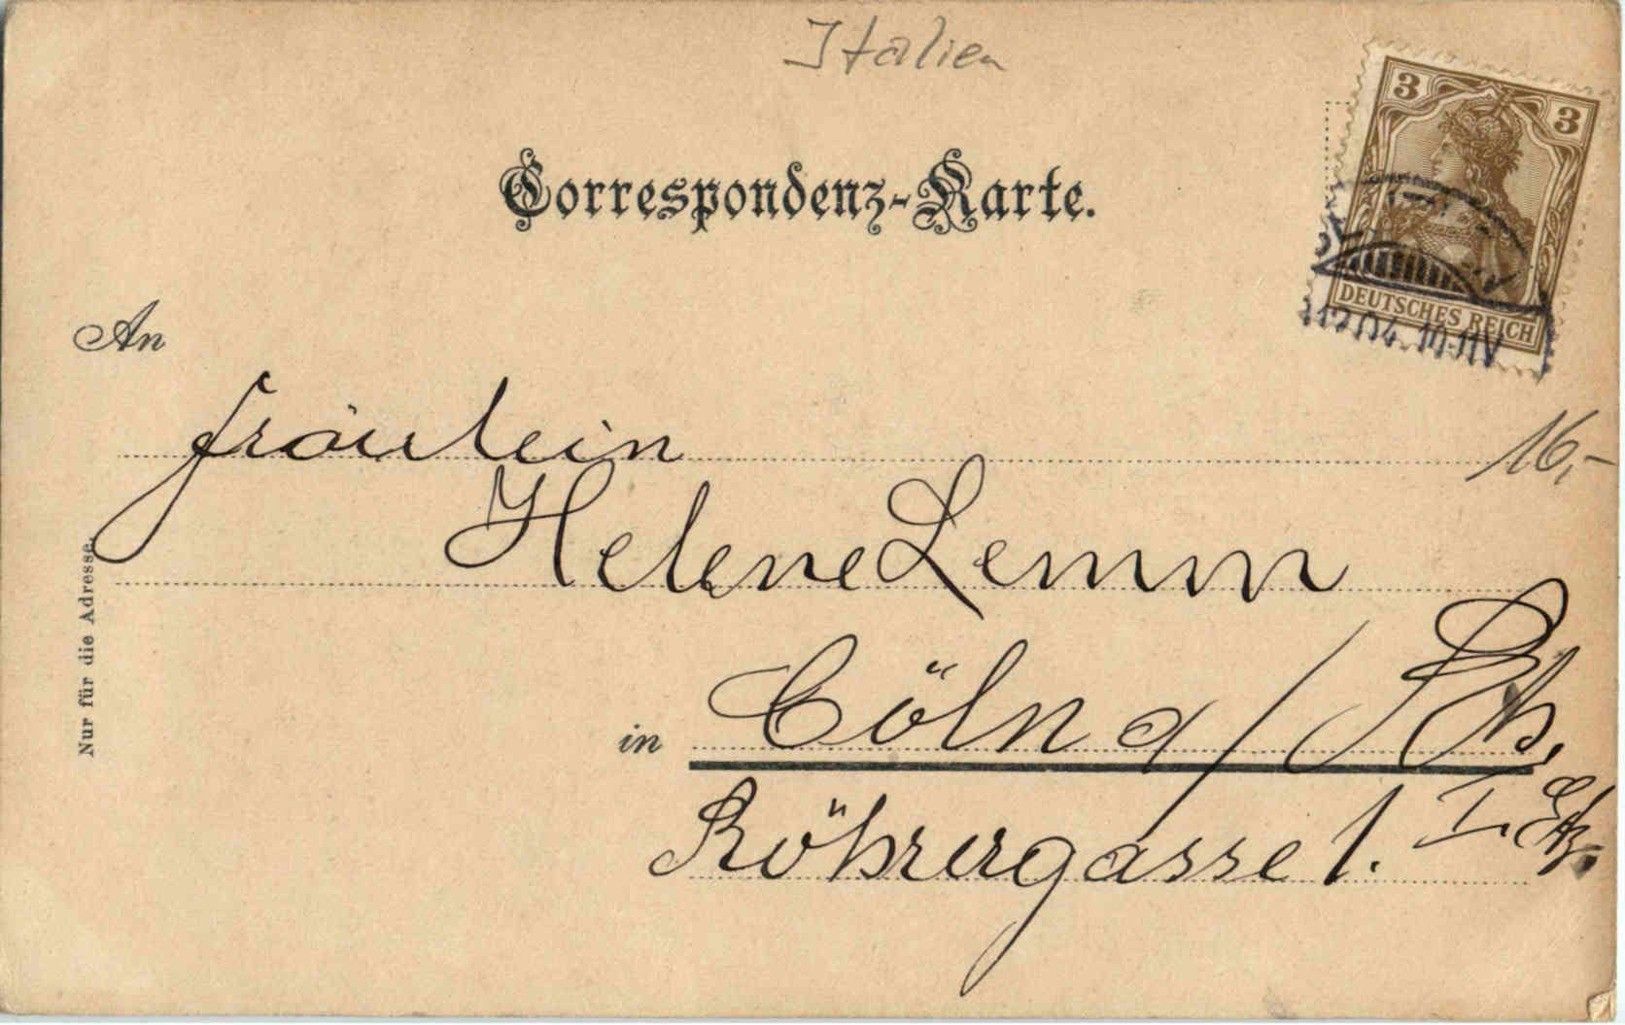 Italien
3 3
Correspondenz-Karte.
DEUTSCHES REICH
An
Fräulein
16,-
Helene Lemm
Nur für die Adresse.
in Cöln a/Rh.
Röhrergasse 1. I. Etg.